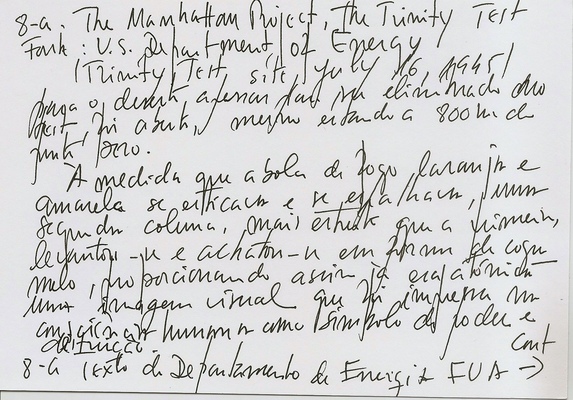 8-a. The Manhattan Project, the Trinity Test
Fonte: U.S. Department of Energy
(Trinity Test site, July 16, 1945)
o, mesmo estando a 800 m do
zero.
A medida que a bola de fogo laranja e
amarela se esticava e se espalhava, uma
segunda coluna, mais estreita que a primeira,
levantou-se e achatou-se em forma de cogu
melo, proporcionando assim à era atômica
uma imagem visual que foi impressa na
humana como símbolo de poder e
destruição.
cont
8-a Texto do Departamento de Energia EUA →